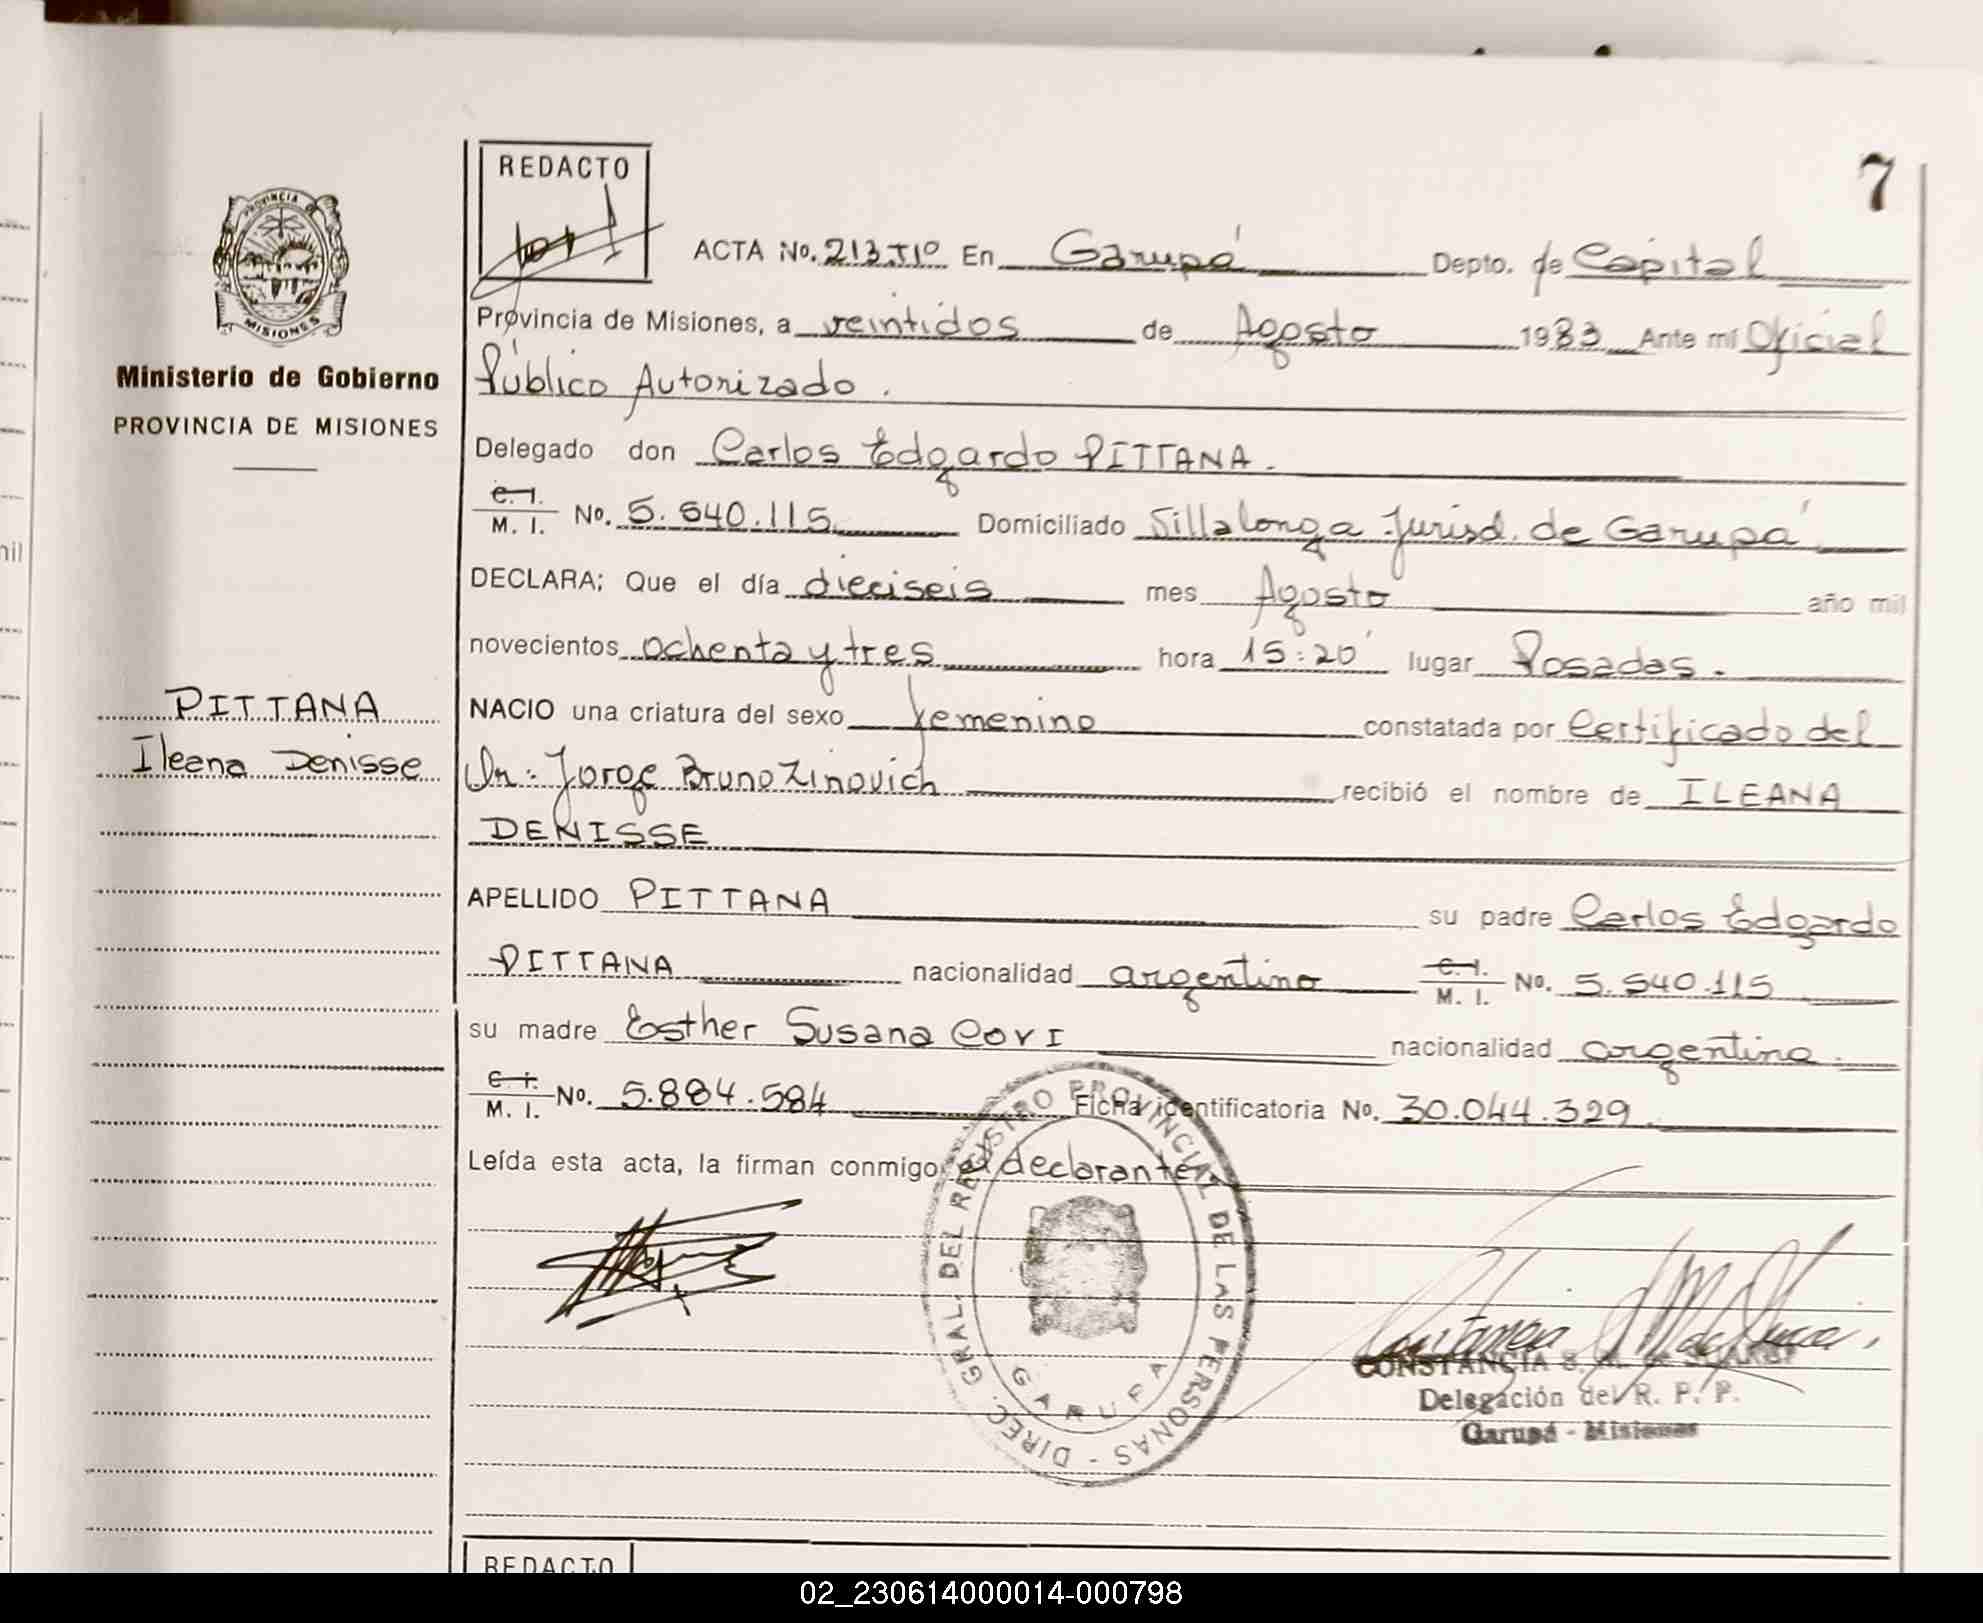 7
REDACTO
PROVINCIA
MISIONES
ACTA No. 213.TIº En Garupá Depto. de Capital
Provincia de Misiones, a veintidos de Agosto 1983 Ante mí Oficial
Público Autorizado.
Ministerio de Gobierno
PROVINCIA DE MISIONES
Delegado don Carlos Edgardo PITTANA.
C. I.
M. I. No. 5.540.115 Domiciliado Villalonga Jurisd. de Garupá
DECLARA; Que el día dieciseis mes Agosto año mil
novecientos ochenta y tres hora 15:20 lugar Posadas.
PITTANA
Ileana Denisse
NACIO una criatura del sexo femenino constatada por Certificado del
Dr: Jorge Bruno Zinovich recibió el nombre de ILEANA
DENISSE
APELLIDO PITTANA su padre Carlos Edgardo
PITTANA nacionalidad argentino C. I.
M. I. No. 5.540.115
su madre Esther Susana COVI nacionalidad argentina.
C. I.
M. I. No. 5.884.584 Ficha identificatoria No. 30.044.329
Leída esta acta, la firman conmigo el declarante
DIREC. GRAL. DEL REGISTRO PROVINCIAL DE LAS PERSONAS -
GARUPA
CONSTANCIA S.
Delegación del R. P. P.
Garupá - Misiones
REDACTO
02_230614000014-000798
nil